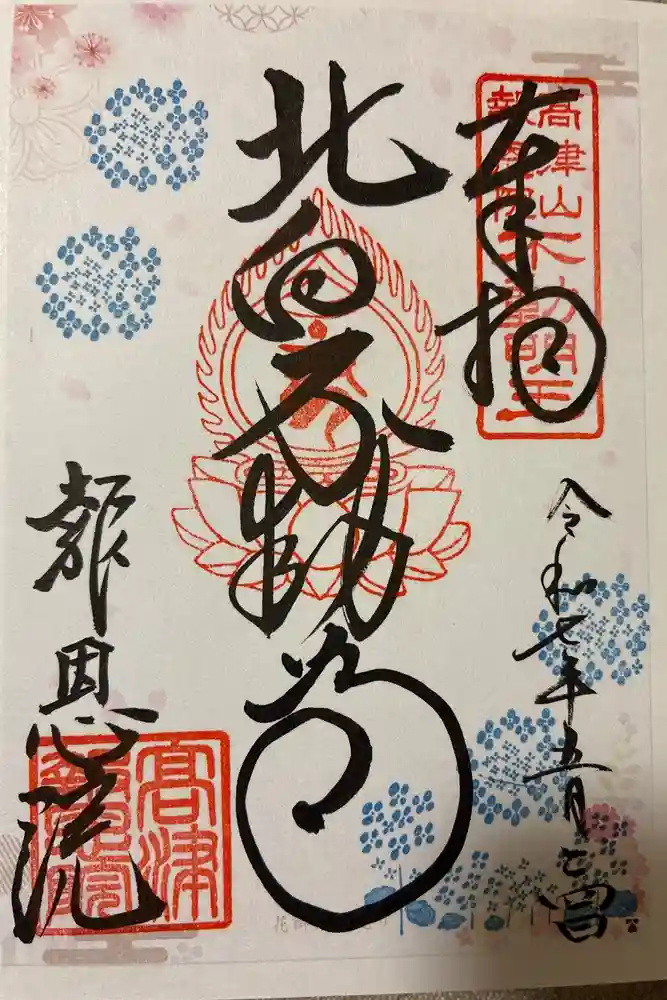 奉拝
高津山
報恩院
北向不動尊
令和七年五月
報恩院
高津
報恩院